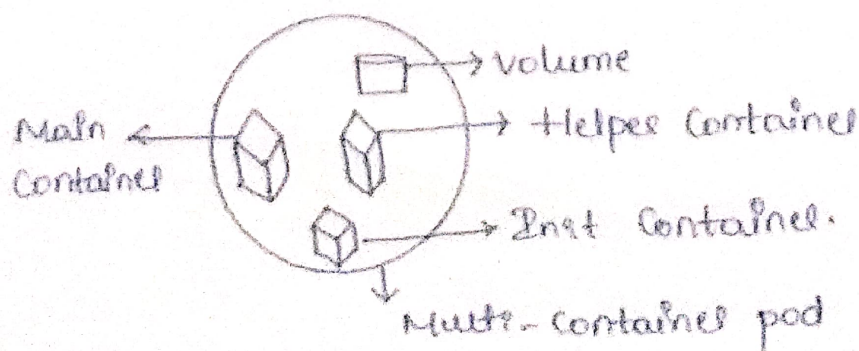 Volume
Main
Container
Helper Container
Init Container.
Multi-container pod